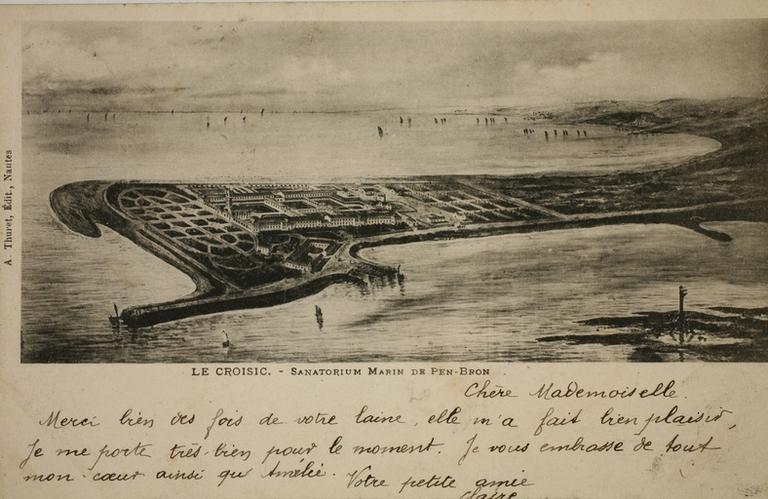 A. Thuret, Édit., Nantes
LE CROISIC. - SANATORIUM MARIN DE PEN-BRON
Chère Mademoiselle.
Merci bien des fois de votre laine, elle m'a fait bien plaisir,
Je me porte très-bien pour le moment. Je vous embrasse de tout
mon cœur ainsi qu'Amélie. Votre petite amie
Claire